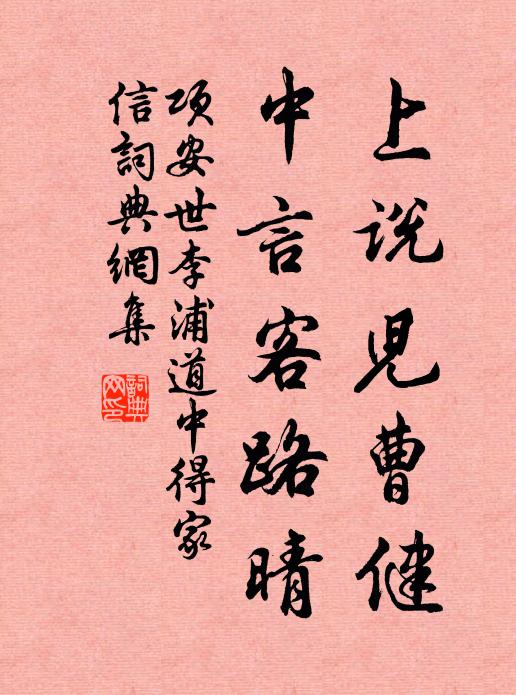 上說児曹健
中言客路晴
項安世李浦道中得家
信詞典網集
詞典
网印